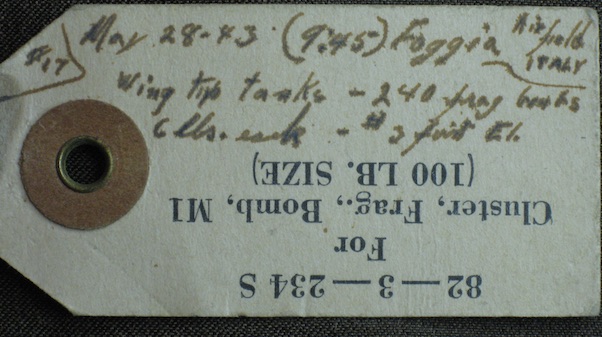 #17
May 28-43 (9:45) Foggia Air field
ITALY
Wing tip tanks - 240 frag bombs
6 lbs. each - #3 first El.
82—3—234 S
For
Cluster, Frag., Bomb, M1
(100 LB. SIZE)